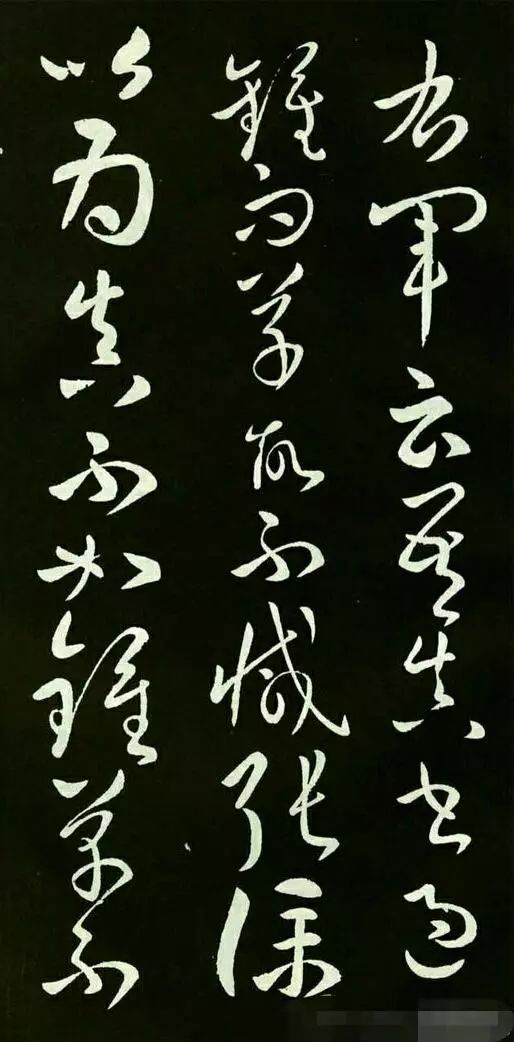 右軍云吾真書過
鍾而草故不減張僕
以為真不如鍾草不